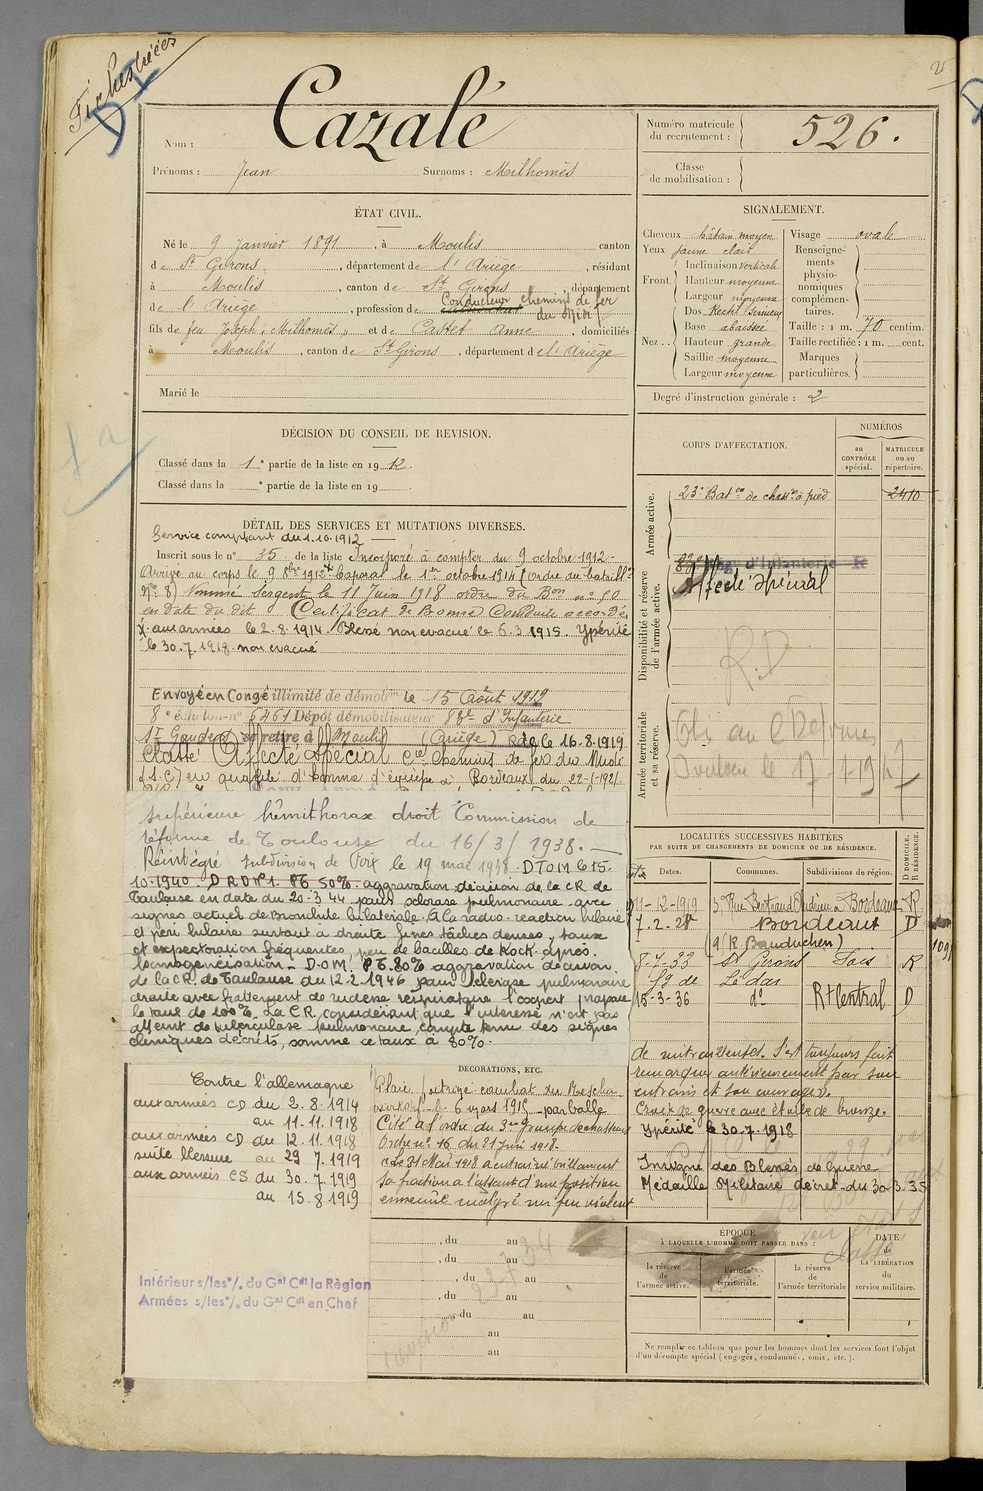 Fiches créées
Nom : Cazalé
Prénoms : Jean Surnoms : Milhomès
Numéro matricule du recrutement : 526.
Classe de mobilisation :
ÉTAT CIVIL.
Né le 9 Janvier 1891, à Moulis canton
de St Girons, département de l'Ariège, résidant
à Moulis, canton de St Girons, département
de l'Ariège, profession de Conducteur chemins de fer
du Midi
fils de feu Joseph "Milhomès" et de Castet Anne, domiciliés
à Moulis, canton de St Girons, département de l'Ariège
Marié le
SIGNALEMENT.
Cheveux châtain moyen
Yeux jaune clair
Front. Inclinaison verticale
Hauteur moyenne
Largeur moyenne
Nez. Dos Rect. Sinueux
Base abaissée
Hauteur grande
Saillie moyenne
Largeur moyenne
Visage ovale
Renseignements physionomiques complémentaires.
Taille : 1 m. 70 centim.
Taille rectifiée : 1 m. cent.
Marques particulières.
Degré d'instruction générale : 2
DÉCISION DU CONSEIL DE REVISION.
Classé dans la 1e partie de la liste en 1912.
Classé dans la e partie de la liste en 19
DÉTAIL DES SERVICES ET MUTATIONS DIVERSES.
Service comptant du 1.10.1912
Inscrit sous le n° 35 de la liste Incorporé à compter du 9 octobre 1912
Arrivé au corps le 9 8bre 1912 Caporal le 1er octobre 1914 (ordre du bataill
n° 8) Nommé Sergent le 11 Juin 1918 ordre du Bon n° 50
en date du dit Certificat de Bonne Conduite accordé.
X aux armées le 2.8.1914. Blessé non evacué le 6.3.1915. Ypérité
le 30.7.1918 non evacué
Envoyé en Congé illimité de démobon le 15 Août 1919
8e échelon n° 6461 Dépôt démobilisateur 83e d'Infanterie
St Gaudens se retire à Moulis (Ariège) Rdc le 16.8.1919
Classé Affecté Spécial Cie Chemins de fer du Midi
(S.C) en qualité d'homme d'équipe à Bordeaux du 22-1-1921.
supérieure hémithorax droit Commission de
réforme de Toulouse du 16/3/1938.
Réintégré subdivision de Foix le 19 mai 1938 DTOM le 15.
10.1940. D R D N°1. P6 50%. aggravation décision de la CR de
Toulouse en date du 20.3.44 pour sclérose pulmonaire avec
signes actuels de Bronchite bilatérale. A la radio reaction hilaire
et peri hilaire surtout à droite fines tâches denses, toux
et expectoration fréquentes, peu de bacilles de Kock après
homogénéisation _ D.O.M. P6.80% aggravation décision
de la CR de Toulouse du 12.2.1946 pour Sclérose pulmonaire
droite avec frottement de rudesse respiratoire l'expert propose
le taux de 100%. La C.R. considérant que l'intéressé n'est pas
atteint de tuberculose pulmonaire, compte tenu des signes
cliniques décrits, somme ce taux à 80%.
CORPS D'AFFECTATION.
NUMÉROS
au CONTRÔLE spécial.
MATRICULE ou au répertoire.
Armée active.
23e Baton de chassrs à pied 2410
Disponibilité et réserve de l'armée active.
d'Infanterie
Affecté Spécial
R.D
Armée territoriale et sa réserve.
Toulouse le 17
LOCALITÉS SUCCESSIVES HABITÉES
PAR SUITE DE CHANGEMENTS DE DOMICILE OU DE RÉSIDENCE.
Dates. Communes. Subdivisions de région. D DOMICILE. R RÉSIDENCE.
11-12-1919 3, Rue Bertrand Andrieu à Bordeaux R
7.2.21 Bordeaux D
(9 R. Bauduchen)
8-7-33 St Girons Foix R
Lédar
18-3-36 do Rt Central D
Contre l'allemagne
aux armées CD du 2.8.1914
au 11.11.1918
aux armées CD du 12.11.1918
suite blessure au 29 7.1919
aux armées CS du 30.7.1919
au 15.8.1919
Intérieur s/les °/. du Gal Cdt la Règion
Armées s/les °/. du Gal Cdt en Chef
DECORATIONS, ETC.
Plaie poitrine combat du
le 6 mars 1915 par balle
Cité à l'ordre du 3eme Groupe de chasseurs
Ordre n° 16 du 21 Juin 1918.
"Le 31 Mai 1918 a entrainé brillament
sa fraction à l'assaut d'une position
ennemie malgré un feu violent
de mitrailleuses. S'est toujours fait
remarquer antérieurement par son
entrain et son courage".
Croix de guerre avec étoile de bronze.
Ypérité le 30.7.1918
Insigne des Blessés de Guerre
Médaille Militaire décret du 30.3.35
, du au
, du au
, du au
, du au
, du au
au
au
ÉPOQUE
À LAQUELLE L'HOMME DOIT PASSER DANS :
la réserve de l'armée active.
l'armée territoriale.
la réserve de l'armée territoriale
DATE de LA LIBÉRATION du service militaire.
Ne remplir ce tableau que pour les hommes dont les services font l'objet
d'un décompte spécial (engagés, condamnés, omis, etc.).